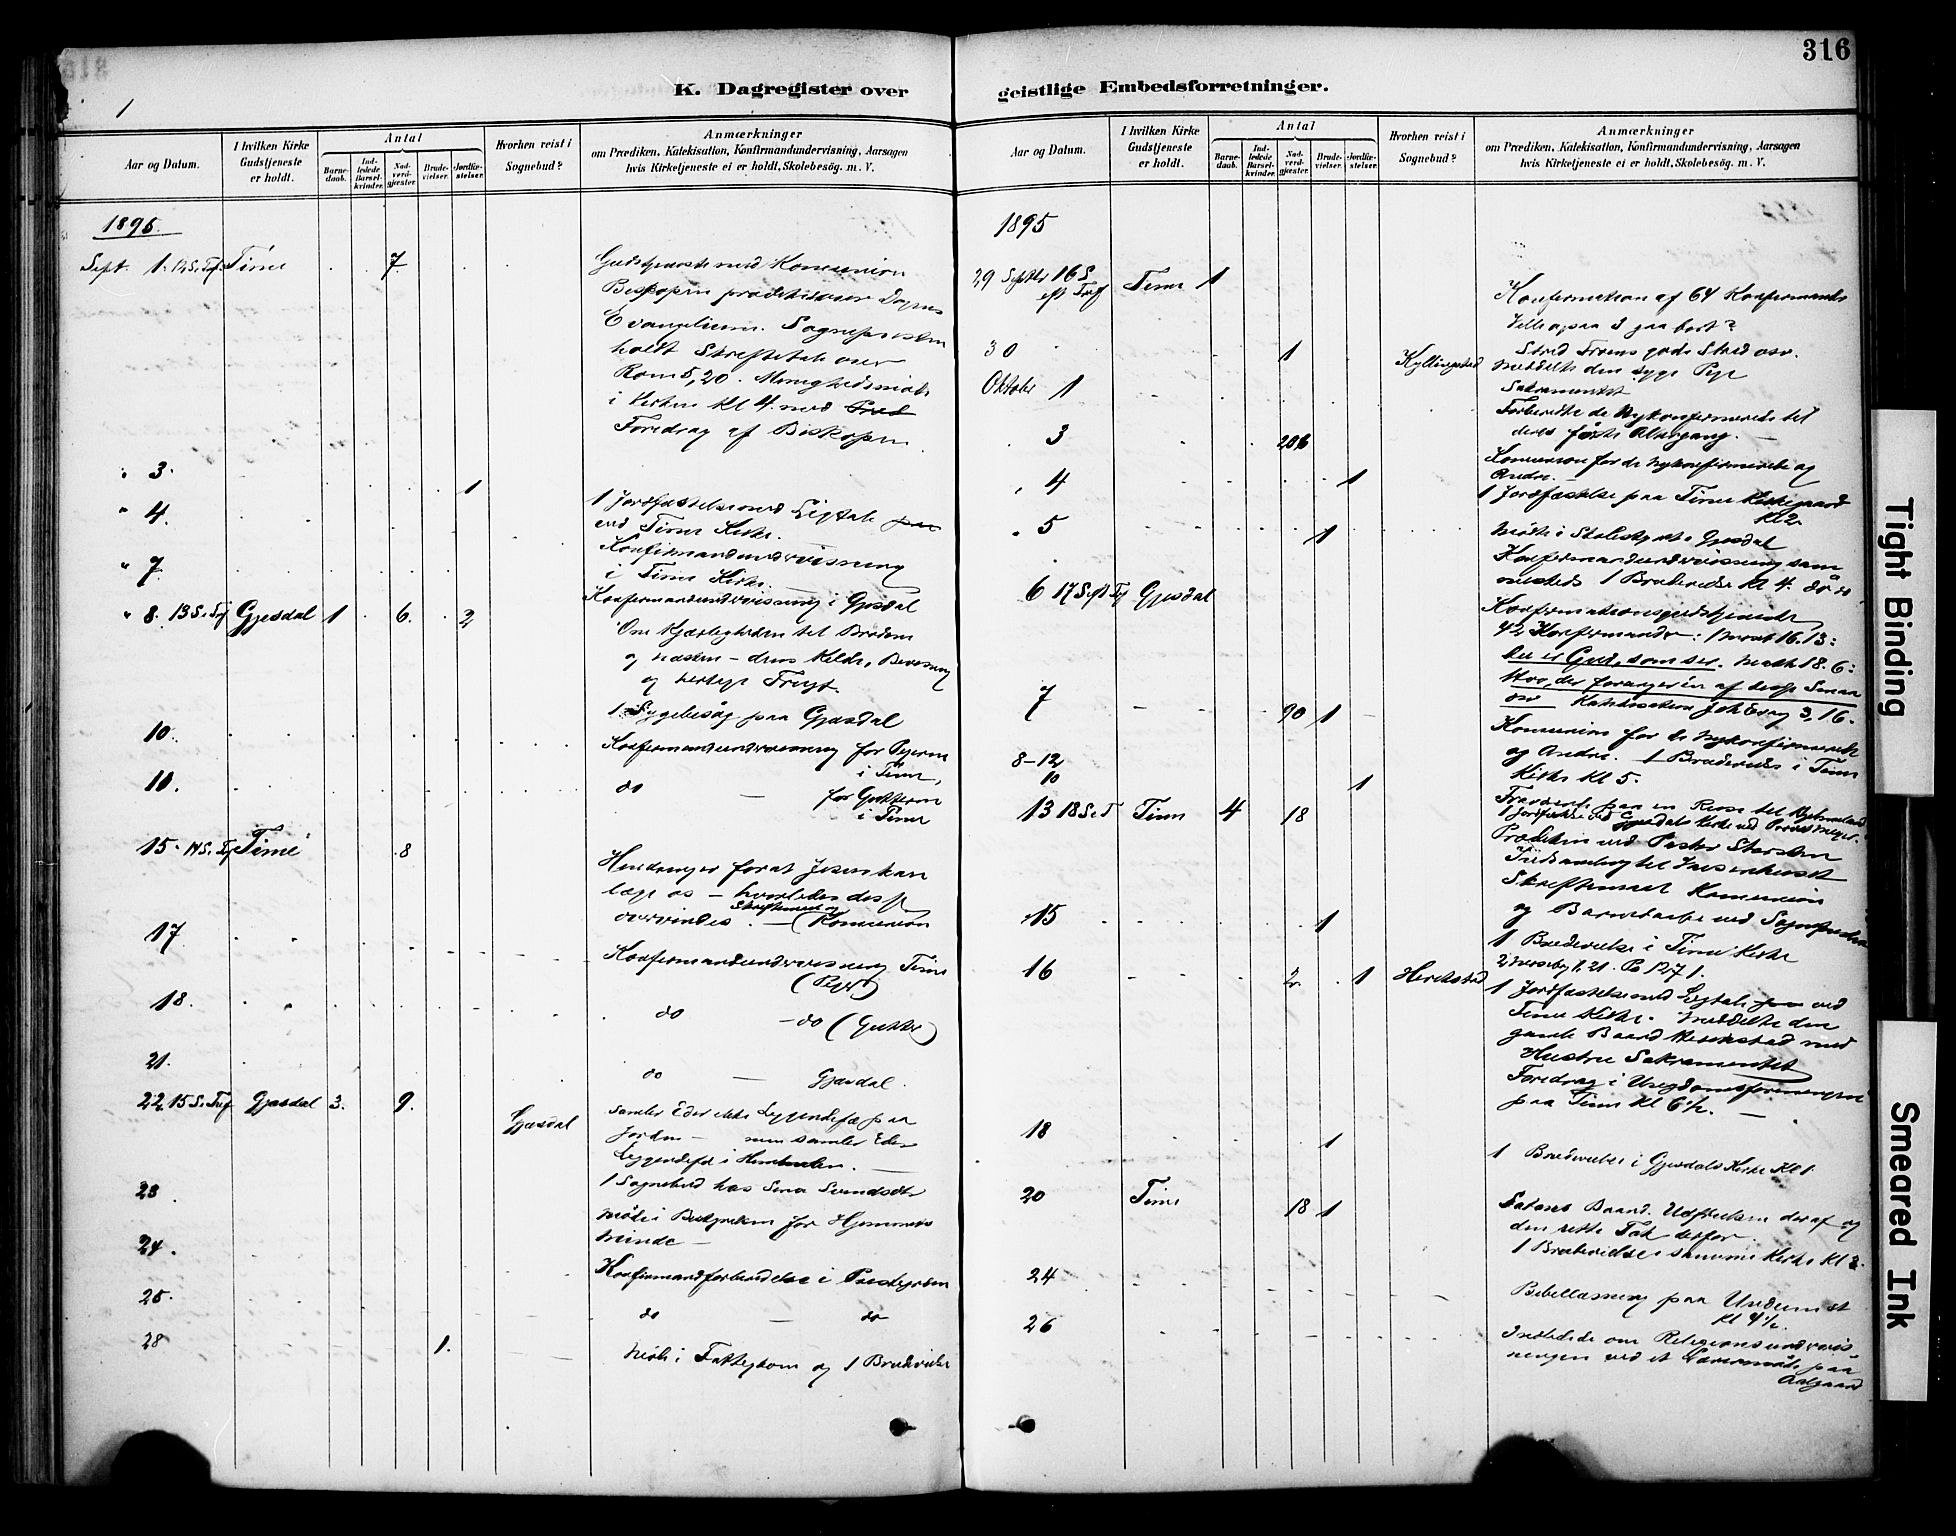 316
K. Dagregister over
geistlige Embedsforretninger.
1
Aar og Datum.
I hvilken Kirke Gudstjeneste er holdt.
Antal
Barnedaab.
Indledede Barselkvinder.
Nadverdgjæster.
Brudevielser.
Jordfæstelser.
Hvorhen reist i Sognebud?
Anmærkninger
om Prædiken, Katekisation, Konfirmandundervisning, Aarsagen
hvis Kirketjeneste ei er holdt, Skolebesög. m. V.
1895.
Sept. 1. 12 S. e. Tref. Time 7 Gudstjeneste med Kommunion
Biskopen prædikede over Dagens
Evangelium. Sognepresten
holdt Skriftetale over
Rom 5,20. Menighedsmøde
i Kirken Kl 4 med
Foredrag af Biskopen
" 3. 1 1 Jordfæstelse med Ligtale
ved Time Kirke.
" 4. Konfirmandundervisning
i Time Kirke.
" 7. Konfirmandundervisning i Gjesdal
" 8. 13 S. e. Tref Gjesdal 1 6. 2 Om Kjærligheden til Broderen
og Næsten – dens Kilde, Bevisning
og herlige Frugt.
1 Sygebesøg paa Gjesdal
10. Konfirmandundervisning for Pigerne
i Time,
do — for Gutterne
i Time
15. 14 S. Tref Time 8 Hindringer forat Jesus kan
læge os – hvorledes disse
overvindes. — Skriftemaal og Komunion
17. Konfirmandundervisning Time
(Piger)
18. do — do (Gutter)
21. do — Gjesdal.
22. 15 S. Tref Gjesdal 3. 9. Gjesdal Samler Eder ikke Liggendefæ paa
Jorden — men samler Eder
Liggendefæ i Himmelen. —
1 Sognebud hos
23. Møde i for Hjemmets
24. Konfirmandforberedelse i
25. do — do
28 1. Møde i Fattigkom og 1 Brudevielse
Aar og Datum.
I hvilken Kirke Gudstjeneste er holdt.
Antal
Barnedaab.
Indledede Barselkvinder.
Nadverdgjæster.
Brudevielser.
Jordfæstelser.
Hvorhen reist i Sognebud?
Anmærkninger
om Prædiken, Katekisation, Konfirmandundervisning, Aarsagen
hvis Kirketjeneste ei er holdt, Skolebesög. m. V.
1895
29 Septbr 16 S eft Tref Time 1 Konfirmation af 64 Konfirmander
Ville ogsaa I gaa bort?
Strid Troens gode Strid osv.
30 1 Kyllingstad Meddelte den syge Pige
Sakramentet
Oktober 1 Forberedte de Nykonfirmerede til
deres første Altergang. —
3 206 Komunion for de nykonfirmerede og
Andre. —
" 4 1 1 Jordfæstelse paa Time Kirkegaard
Kl 2.
" 5 1 Møde i Gjesdal
Konfirmandundervisning sam-
mesteds 1 Brudevielse Kl 4.
6 17 S eft Tref Gjesdal Konfirmationsgudstjeneste
42 Konfirmander: 1 Moseb 16. 13:
Du er Gud, som ser. Math 18. 6:
Hvo, der forarger en af disse Smaa
osv Katekisation Joh Evang 3, 16.
7 90 1 Komunion for de Nykonfirmerede
og Andre. 1 Brudevielse i Time
Kirke Kl 5.
8–12 Fraværende paa en Reise til
10 1 1 Jordfæstelse ved Gjesdals Kirke ved
13 18 S. e. T Time 4 18 Prædiken ved Pastor
Skriftemaal Komunion
og Barnedaabe ved Sognepresten
" 15 1 1 Brudevielse i Time Kirke
16 2 1 1 Jordfæstelse med Ligtale ved
Time Kirke. Meddelte den
gamle med
Hustru Sakramentet
Foredrag i Ungdomsforeningen
paa Time Kl 6 1/2. —
18 1 1 Brudevielse i Gjesdals Kirke Kl 1.
20 Time 18 1 Satans Baand. Udfrielsen deraf og
den rette Tak derfor.
1 Brudevielse i samme Kirke Kl
24 Bibellæsning paa Undeim st
Kl 4 1/2.
26 Indledede om Religionsundervis-
ningen ved et Lærermøde paa
Aalgaard
Tight Binding
Smeared Ink